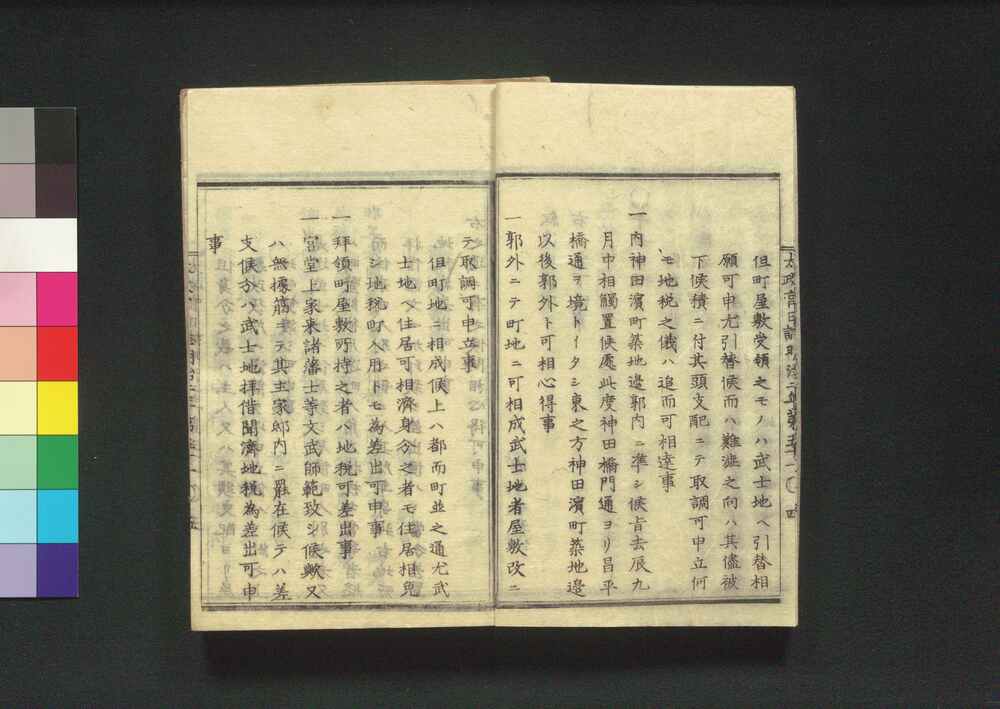 太政官日誌明治二年第五十一 四
但町屋敷受領之モノハ武士地ヘ引替相
願可申尤引替候而ハ難渋之向ハ其儘被
下候積ニ付其頭支配ニテ取調可申立何
モ地税之儀ハ追而可相達事
一内神田濱町築地邊郭内ニ準シ候旨去辰九
月中相觸置候處此度神田橋門通ヨリ昌平
橋通ヲ境トイタシ東之方神田濱町築地邊
以後郭外ト可相心得事
一郭外ニテ町地ニ可相成武士地者屋敷改ニ
テ取調可申立事
但町地ニ相成候上ハ都而町並之通尤武
士地ヘ住居可相濟身分之者モ住居相免
シ地税町入用トモ為差出可申事
一拝領町屋敷所持之者ハ地税可差出事
一宮堂上家来諸藩士等文武師範致シ候歟又
ハ無據筋ニテ其主家邸内ニ罷在候テハ差
支候分ハ武士地拝借聞濟地税為差出可申
事